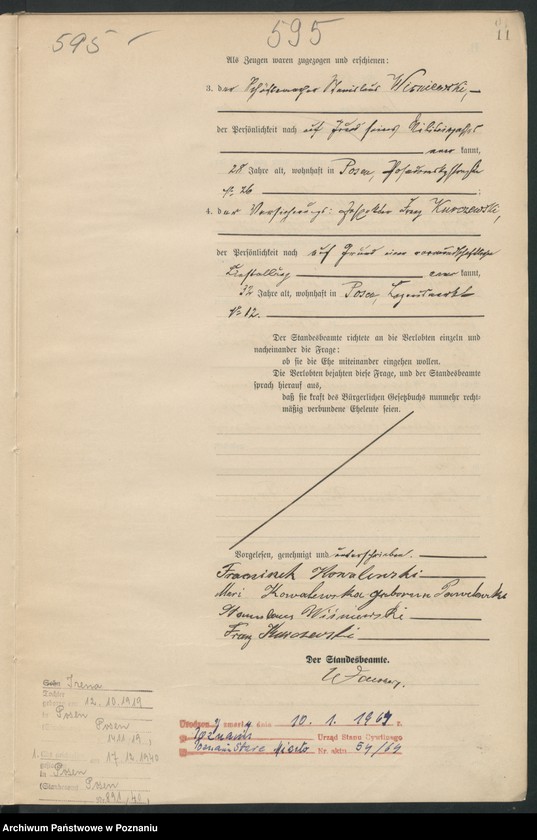 595
595
11
Als Zeugen waren zugezogen und erschienen:
3. der Stanislaus Wisniewski,
der Persönlichkeit nach auf Grund seines Militärpasses
kannt,
28 Jahre alt, wohnhaft in Posen,
№ 26 ;
4. der Versicherungs-Inspektor Franz Kurczewski,
der Persönlichkeit nach auf Grund einer vormundschaftlichen
Bestallung kannt,
32 Jahre alt, wohnhaft in Posen,
№ 12.
Der Standesbeamte richtete an die Verlobten einzeln und
nacheinander die Frage:
ob sie die Ehe miteinander eingehen wollen.
Die Verlobten bejahten diese Frage, und der Standesbeamte
sprach hierauf aus,
daß sie kraft des Bürgerlichen Gesetzbuchs nunmehr recht-
mäßig verbundene Eheleute seien.
Vorgelesen, genehmigt und unterschrieben.
Franciszek Kowalewski
Kowalewska geborene Pawłowska
Stanislaus Wiśniewski
Franz Kurczewski
Der Standesbeamte.
Irena
Tochter
geboren am 12.10.1919
in Posen
Posen
1411/19
1. 17.12.1940
in Posen
Posen
891/40
zmarł dnia 10.1.1969 r.
w Poznaniu Urząd Stanu Cywilnego
Poznań Stare Miasto Nr. aktu 54/69
Archiwum Państwowe w Poznaniu